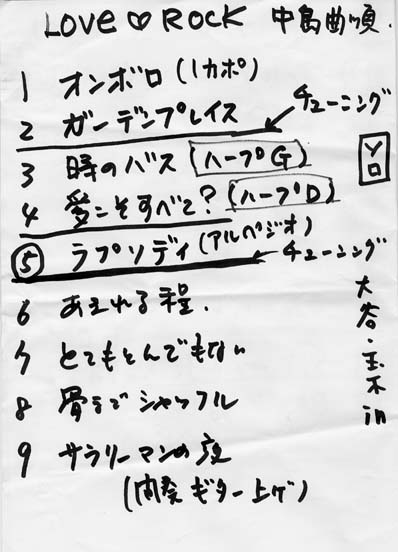 LOVE♡ROCK 中島曲順.
1 オンボロ (1カポ)
2 ガーデンプレイス
チューニング
3 時のバス (ハープG)
4 愛こそすべて? (ハープD)
⑤ ラプソディ (アルペジオ)
チューニング
6 あきれる程.
7 とてもとんでもない
8 骨までシャッフル
9 サラリーマンの夜
(内発ギター上ゲ)
大答・玉木 in